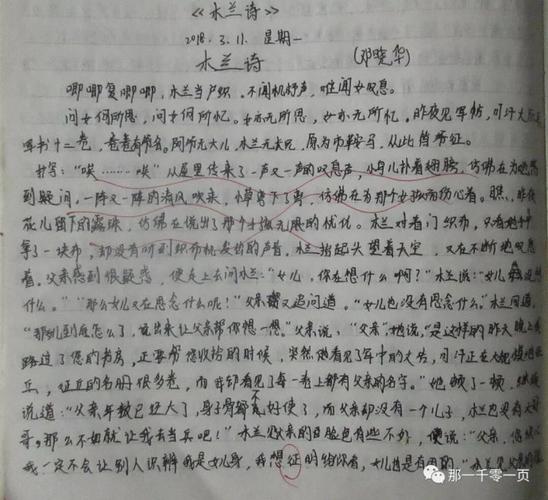 《木兰诗》
2018.3.11. 星期一
木兰诗 (邓晓华)
唧唧复唧唧，木兰当户织，不闻机杼声，唯闻女叹息。
问女何所思，问女何所忆。女亦无所思，女亦无所忆。昨夜见军帖，可汗大点
军书十二卷，卷卷有爷名。阿爷无大儿，木兰无长兄，愿为市鞍马，从此替爷征。
扩写："唉……唉"从屋里传来了一声又一声的叹息声，小鸟儿扑着翅膀，仿佛在为
到疑问，一阵又一阵的清风吹来，小草弯下了身，仿佛在为那个女孩而伤心着。瞧，昨夜
花儿留下的露珠，仿佛在说出了那个小孩无限的忧伤。木兰对着门织布，只看她
拿了一块布，却没有听到织布机发出的声音。木兰抬起头望着天空，又在不断地叹息
着。父亲感到很疑惑，便走上去问木兰："女儿，你在想什么啊？"木兰说："女儿没想
什么。""那么女儿又在思念什么呢！"父亲又追问道。"女儿也没有思念什么。"木兰回道，
"那儿到底怎么了，说出来让父亲帮你想一想。"父亲说，"父亲"她说，"是这样的昨天晚上
路过了您的书房，正要帮您收拾的时候，突然他看见了军中的文告，可汗正在大规模地征
兵，征兵的名册很多卷，而我却看见了每一卷上都有父亲的名字。"她顿了一顿，继续
说道："父亲年数已经大了，身子骨都不好使了，而父亲却没有一个儿子，木兰也没有大哥
哥。那么不如就让我去当兵吧！"木兰见父亲的脸色有些不好，便说："父亲，您放心
我一定不会让别人识辨我是女儿身，我想证明给你看，女儿也是有用的"木兰见父亲
那一千零一页